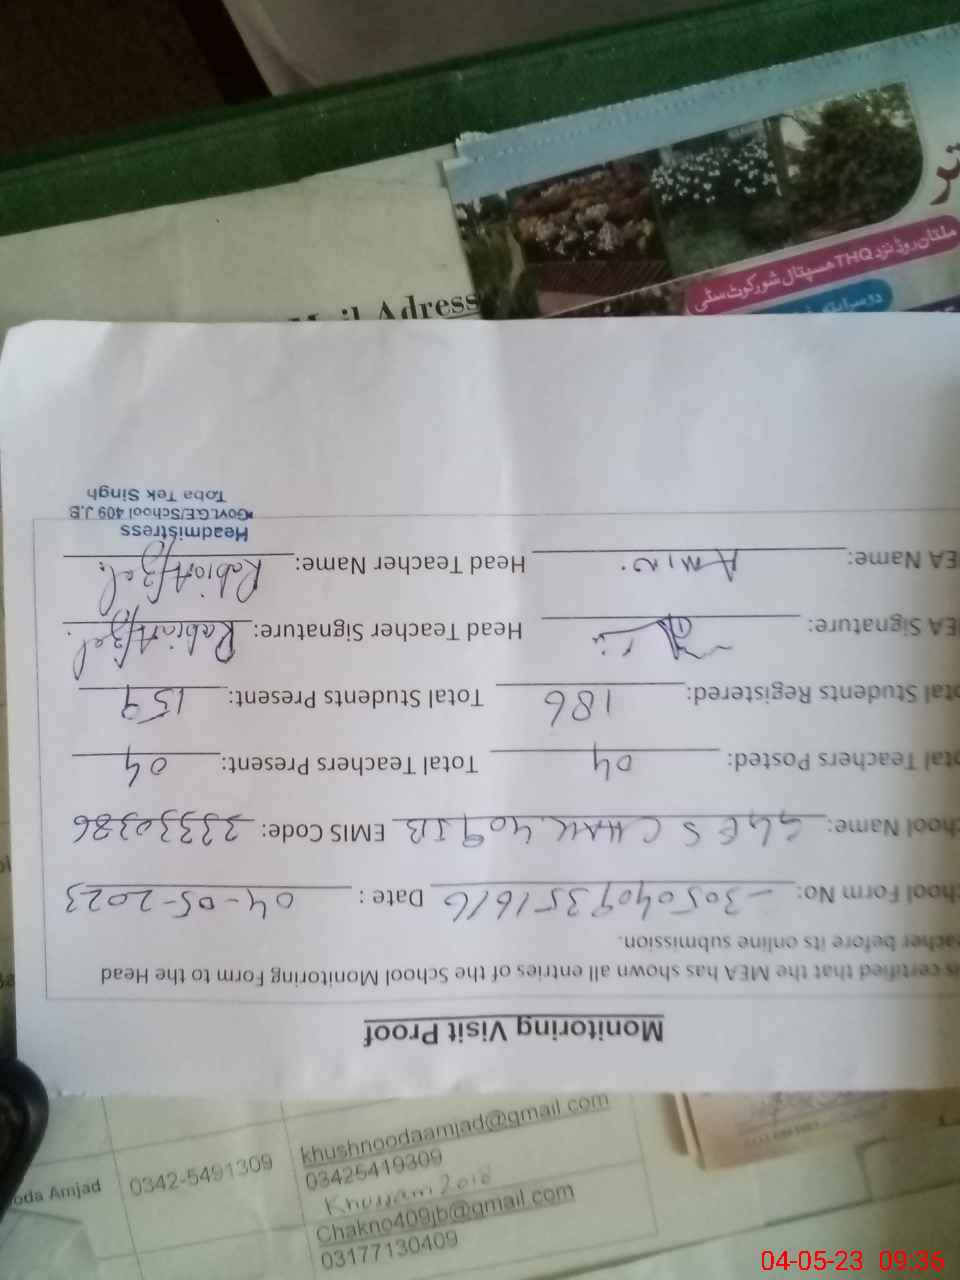 تر
ملتان روڈ نزد THQ ہسپتال شورکوٹ سٹی
Mail Adress
Monitoring Visit Proof
is certified that the MEA has shown all entries of the School Monitoring Form to the Head
eacher before its online submission.
chool Form No: 305040935 1616 Date : 04-05-2023
chool Name: GGES CHAK 409 JB EMIS Code: 33330386
otal Teachers Posted: 04 Total Teachers Present: 04
otal Students Registered: 186 Total Students Present: 159
EA Signature: Head Teacher Signature: Rabia Afzal
EA Name: Amin Head Teacher Name: Rabia Afzal
Headmistress
Govt.GE/School 409 J.B
Toba Tek Singh
oda Amjad 0342-5491309 khushnoodaamjad@gmail.com
03425419309
Khussam2018
Chakno409jb@gmail.com
03177130409
04-05-23 09:36